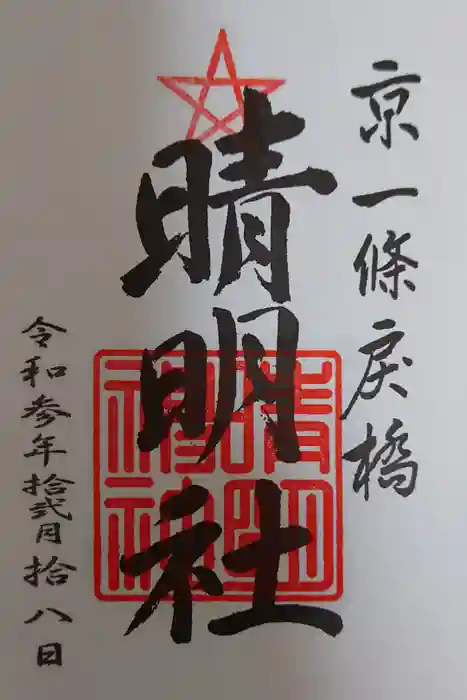 京一條戻橋
晴明社
晴明
神社
令和参年拾弐月拾八日